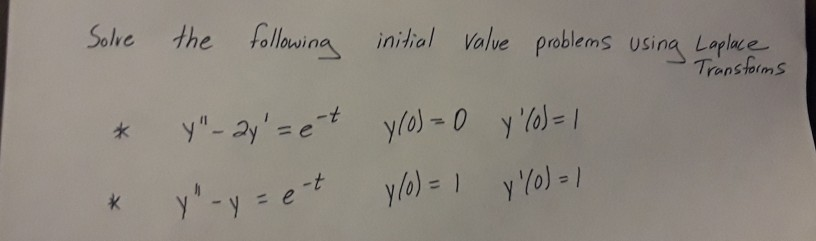 Solve the following initial value problems using Laplace
Transforms
* y" - 2y' = e^-t y(0) = 0 y'(0) = 1
* y" - y = e^-t y(0) = 1 y'(0) = 1